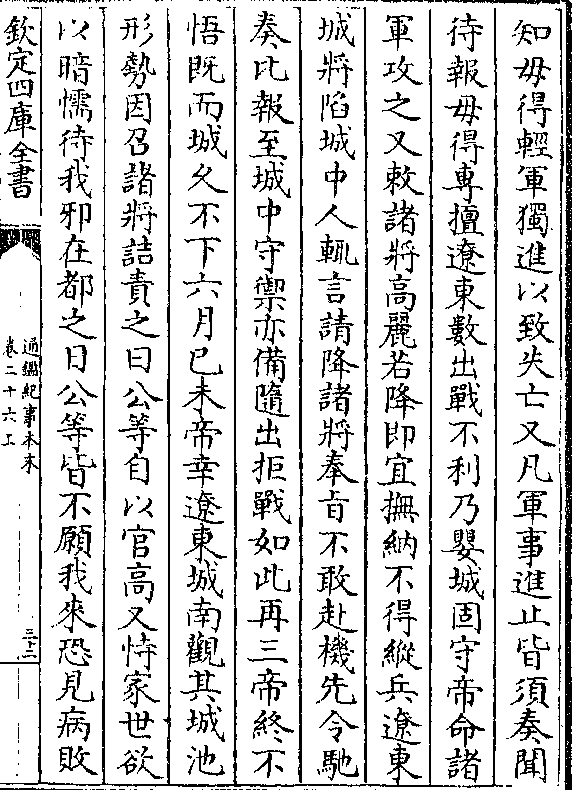 知毋得輕軍獨進以致失亡又凡軍事進止皆須奏聞
待報毋得專擅遼東數出戰不利乃嬰城固守帝命諸
軍攻之又敕諸將高麗若降即宜撫納不得縱兵遼東
城將陷城中人輒言請降諸將奉旨不敢赴機先令馳
奏比報至城中守禦亦備隨出拒戰如此再三帝終不
悟既而城久不下六月已未帝幸遼東城南觀其城池
形勢因召諸將詰責之曰公等自以官高又恃家世欲
以暗懦待我邪在都之日公等皆不願我來恐見病敗
欽定四庫全書
通鑑紀事本末
卷二十六上
三十二